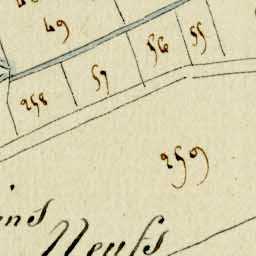 69
56 55
57
258
259
ins
Neufs